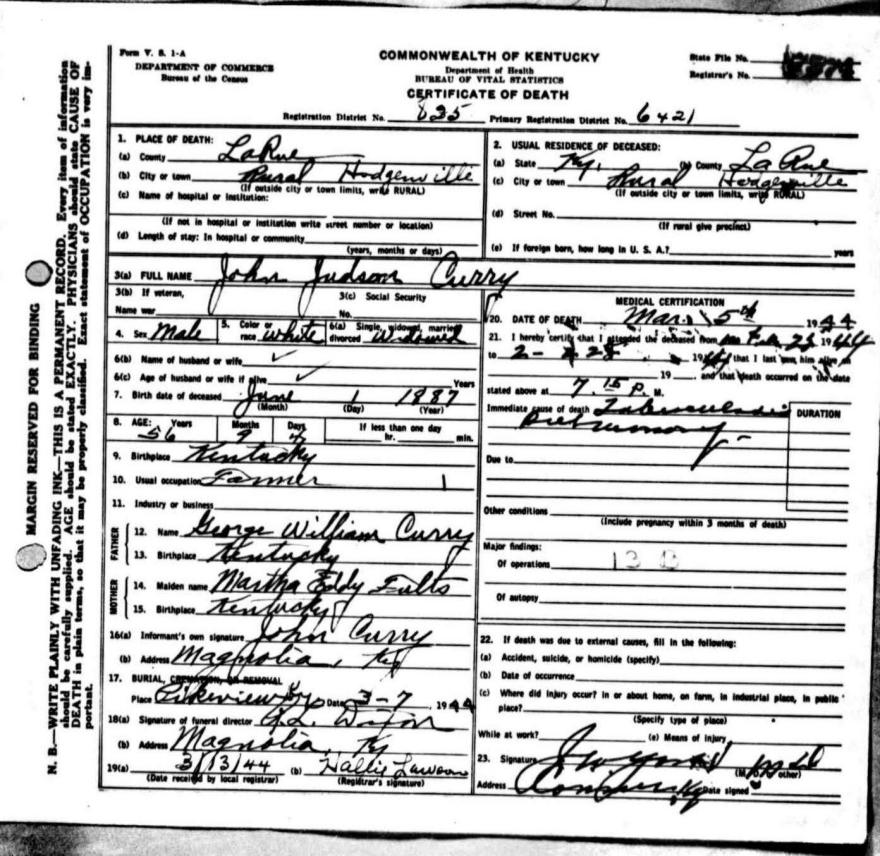 Form V. S. 1-A
DEPARTMENT OF COMMERCE
Bureau of the Census
COMMONWEALTH OF KENTUCKY
Department of Health
BUREAU OF VITAL STATISTICS
CERTIFICATE OF DEATH
State File No.
Registrar's No.
Registration District No. 825 Primary Registration District No. 6421
MARGIN RESERVED FOR BINDING
N. B.—WRITE PLAINLY WITH UNFADING INK—THIS IS A PERMANENT RECORD. Every item of information
should be carefully supplied. AGE should be stated EXACTLY. PHYSICIANS should state CAUSE OF
DEATH in plain terms, so that it may be properly classified. Exact statement of OCCUPATION is very im-
portant.
1. PLACE OF DEATH:
(a) County LaRue
(b) City or town Rural Hodgenville
(If outside city or town limits, write RURAL)
(c) Name of hospital or institution:
(If not in hospital or institution write street number or location)
(d) Length of stay: In hospital or community
(years, months or days)
2. USUAL RESIDENCE OF DECEASED:
(a) State Ky. (b) County LaRue
(c) City or town Rural Hodgenville
(If outside city or town limits, write RURAL)
(d) Street No.
(If rural give precinct)
(e) If foreign born, how long in U. S. A.? years
3(a) FULL NAME John Judson Curry
3(b) If veteran,
Name war
3(c) Social Security
No.
4. Sex Male 5. Color or race White 6(a) Single, widowed, married, divorced Widowed
6(b) Name of husband or wife ✓
6(c) Age of husband or wife if alive ✓ Years
7. Birth date of deceased June 1 1887
(Month) (Day) (Year)
8. AGE: Years Months Days If less than one day
56 9 hr. min.
9. Birthplace Kentucky
10. Usual occupation Farmer
11. Industry or business
FATHER
12. Name George William Curry
13. Birthplace Kentucky
MOTHER
14. Maiden name Martha Eddy Fults
15. Birthplace Kentucky
16(a) Informant's own signature John Curry
(b) Address Magnolia, Ky
17. BURIAL, CREMATION, OR REMOVAL
Place Pikeview Ky Date 3-7, 1944
18(a) Signature of funeral director Dixon
(b) Address Magnolia, Ky
19(a) 3/13/44 (b) Hallie Lawson
(Date received by local registrar) (Registrar's signature)
MEDICAL CERTIFICATION
20. DATE OF DEATH Mar. 5th 1944
21. I hereby certify that I attended the deceased from 1944
to that I last saw him alive on
19 , and that death occurred on the date
stated above at 7.15 P. M.
Immediate cause of death Tuberculosis
Pulmonary
DURATION
Due to
Other conditions
(Include pregnancy within 3 months of death)
Major findings:
Of operations 13 B
Of autopsy
22. If death was due to external causes, fill in the following:
(a) Accident, suicide, or homicide (specify)
(b) Date of occurrence
(c) Where did injury occur? In or about home, on farm, in industrial place, in public
place?
(Specify type of place)
While at work? (e) Means of injury
23. Signature
(M.D. or other)
Address Date signed